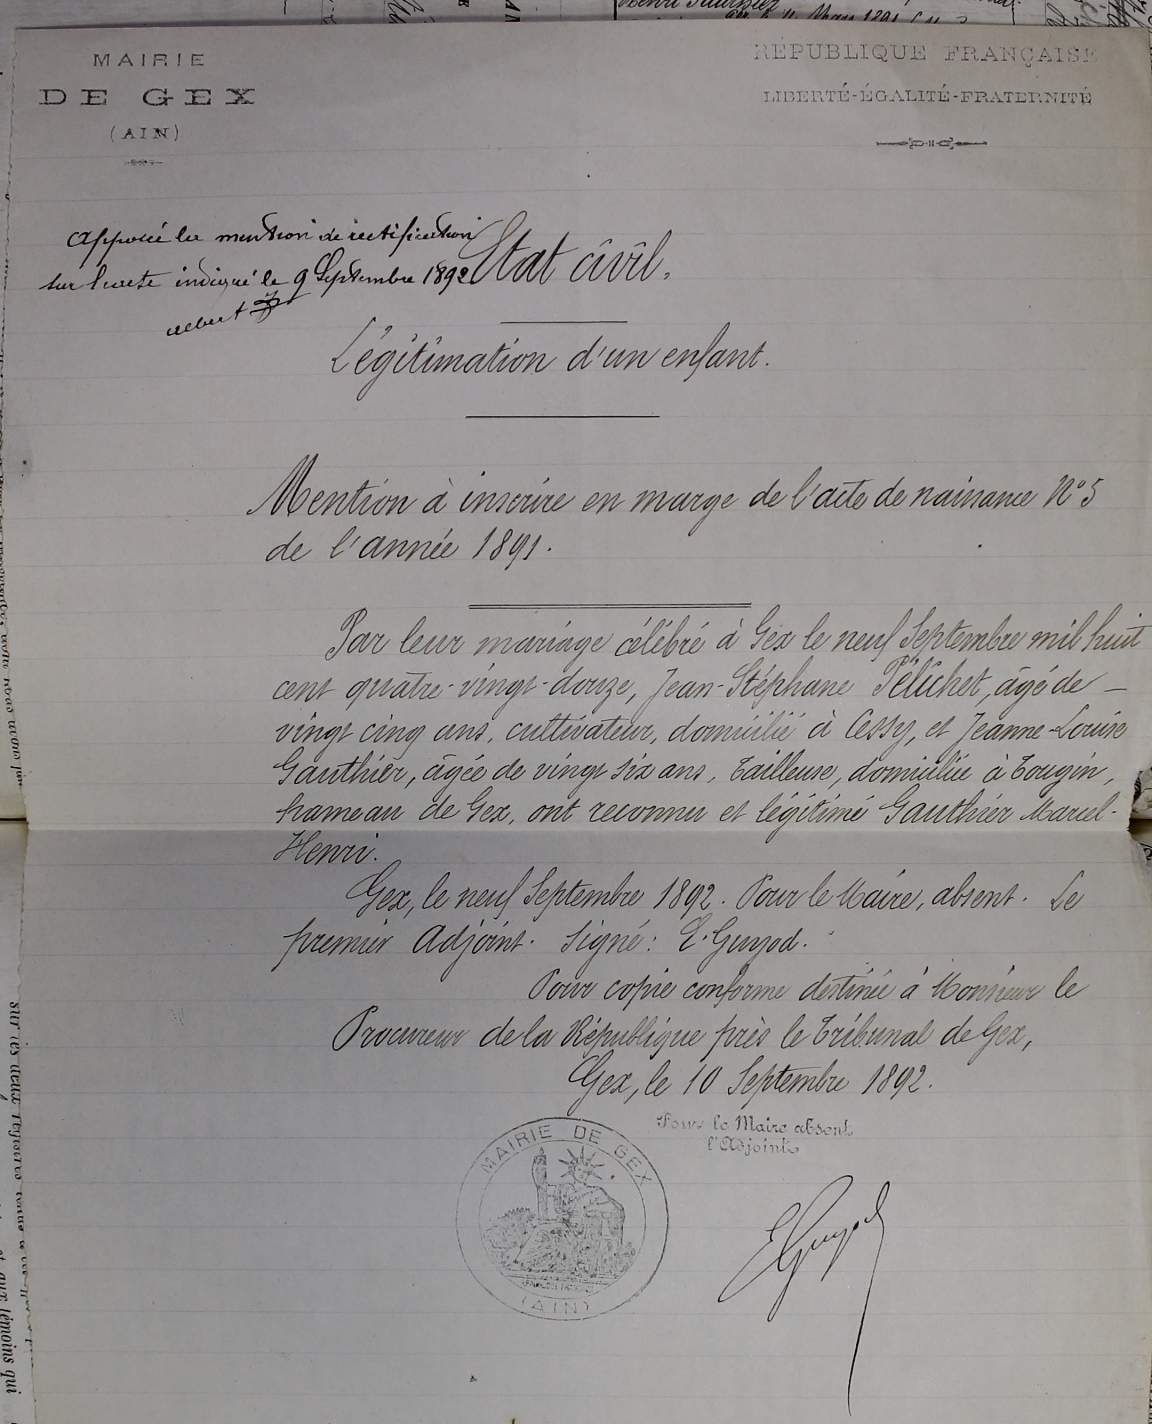 MAIRIE
DE GEX
(AIN)
RÉPUBLIQUE FRANÇAISE
LIBERTÉ-ÉGALITÉ-FRATERNITÉ
apposé la mention de rectification
sur l'acte indiqué le 9 Septembre 1892
Etat civil.
Légitimation d'un enfant.
Mention à inscrire en marge de l'acte de naissance N° 5
de l'année 1891.
Par leur mariage célébré à Gex le neuf Septembre mil huit
cent quatre-vingt-douze, Jean-Stéphane Pélichet, âgé de —
vingt cinq ans, cultivateur, domicilié à Cessy, et Jeanne-Louise
Gauthier, âgée de vingt six ans, tailleuse, domiciliée à Tougin,
hameau de Gex, ont reconnu et légitimé Gauthier Marcel-
Henri.
Gex, le neuf Septembre 1892. Pour le Maire, absent. Le
premier Adjoint. Signé: E. Guyod.
Pour copie conforme destinée à Monsieur le
Procureur de la République près le Tribunal de Gex,
Gex, le 10 Septembre 1892.
Pour le Maire absent
l'Adjoint
MAIRIE DE GEX
(AIN)
EGuyod
sur les deux registres
témoins qui